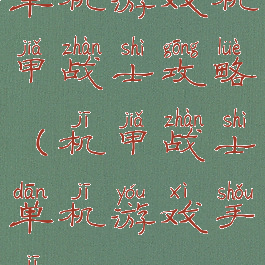 单机游戏机
jiǎ zhàn shì gōng luè
甲战士攻略
jī jiǎ zhàn shì
(机甲战士
dān jī yóu xì shǒu
单机游戏手
jī